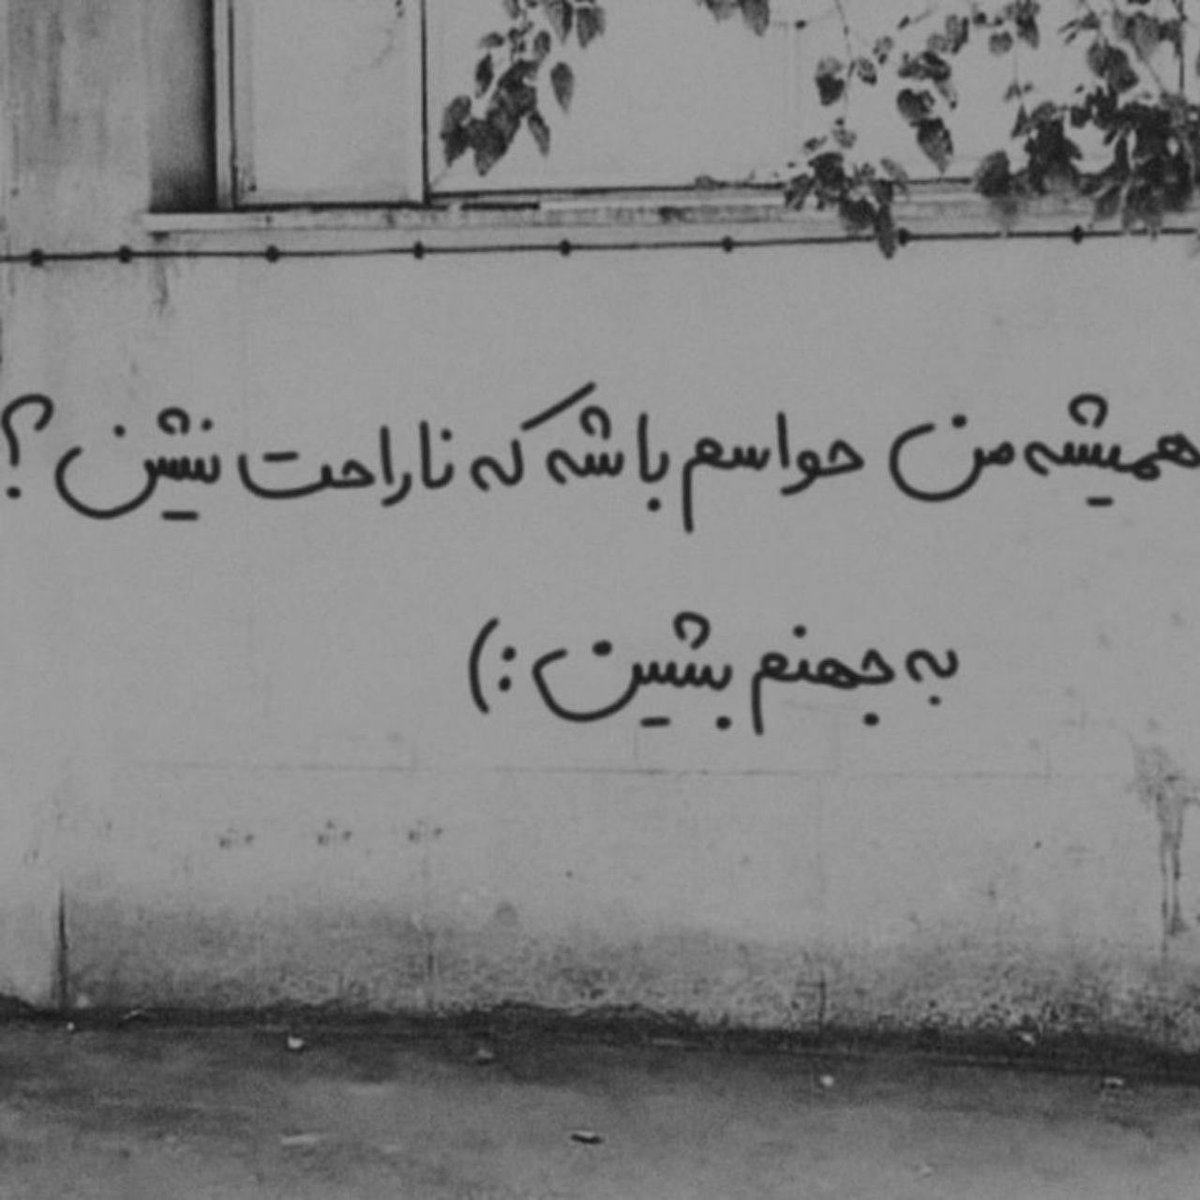 همیشه من حواسم باشه که ناراحت نشین؟
به جهنم بشین :)